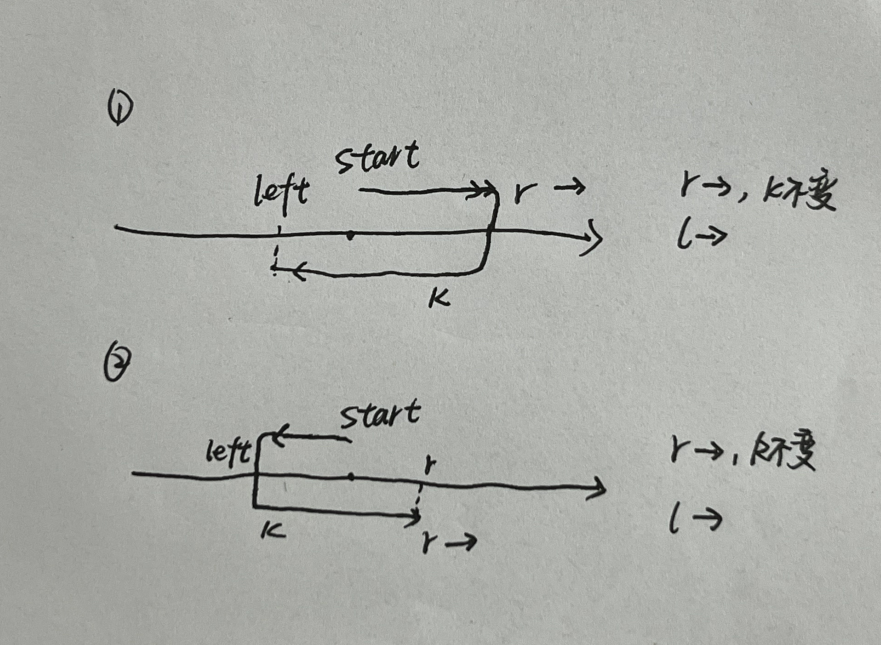 ①
start
left
r →
r →, k不变
l →
k
②
start
left
r
r →, k不变
k
l →
r →